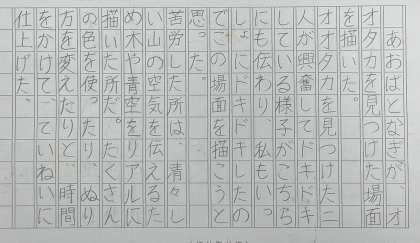 あおばとなぎが、オ
オタカを見つけた場面
を描いた。
オオタカを見つけた二
人が興奮してドキドキ
している様子がこちら
にも伝わり、私もいっ
しょにドキドキしたの
でこの場面を描こうと
思った。
苦労した所は、青々し
い山の空気を伝えるた
め木や青空をリアルに
描いた所だ。たくさん
の色を使ったり、ぬり
方を変えたりと、時間
をかけて、ていねいに
仕上げた。